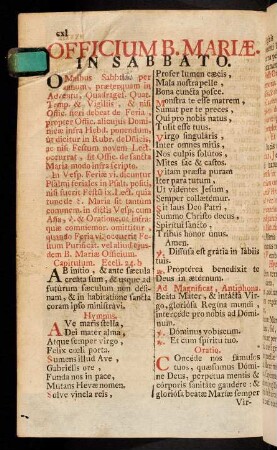 cxl
OFFICIUM B. MARIÆ.
IN SABBATO.
OMnibus Sabbatis per
annum, præterquam in
Adventu, Quadrages. Quat.
Temp. & Vigiliis, & nisi
Offic. fieri debeat de Feria
propter Offic. alicujus Domi-
nicæ infra Hebd. ponendum,
ut dicitur in Rubr. de Officiis,
ac nisi Festum novem Lect.
occurrat, fit Offic. de sancta
Maria modo infra scripto.
In Vesp. Feriæ vi. dicuntur
Psalmi feriales in Psalt. posit.
nisi fuerit Festum ix. Lect. quia
tunc de S. Maria fit tantum
commem. in dictis Vesp. cum
Aña, ℣. & Oratione, ut infra:
quæ commemor. omittitur,
quando Feria vi. occurrit Fe-
stum Purificat. vel aliud ejus-
dem B. Mariæ Officium.
Capitulum. Eccli. 24. b
AB initio, & ante sæcula
creata sum, & usque ad
futurum sæculum non desi-
nam, & in habitatione sancta
coram ipso ministravi.
Hymnus.
AVe maris stella,
Dei mater alma,
Atque semper virgo,
Felix cœli porta.
Sumens illud Ave,
Gabrielis ore,
Funda nos in pace,
Mutans Hevæ nomen.
Solve vincla reis,
Profer lumen cæcis,
Mala nostra pelle,
Bona cuncta posce.
Monstra te esse matrem,
Sumat per te preces,
Qui pro nobis natus,
Tulit esse tuus.
Virgo singularis
Inter omnes mitis,
Nos culpis solutos
Mites fac & castos.
Vitam præsta puram
Iter para tutum,
Ut videntes Jesum,
Semper collætemur.
Sit laus Deo Patri
Summo Christo decus,
Spiritui sancto,
Tribus honor unus.
Amen.
℣. Diffusa est gratia in labiis
tuis.
℟. Propterea benedixit te
Deus in æternum.
Ad Magnificat, Antiphona.
Beata Mater, & intacta Vir-
go, gloriosa Regina mundi,
intercede pro nobis ad Domi-
num.
℣. Dominus vobiscum.
℟. Et cum spiritu tuo.
Oratio.
COncede nos famulos
tuos, quæsumus Domi-
ne Deus, perpetua mentis &
corporis sanitate gaudere: &
gloriosa beatæ Mariæ semper
Vir-